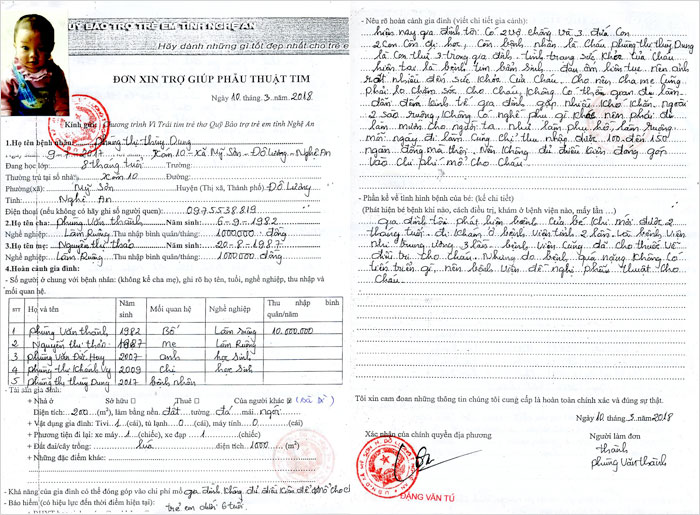 QUỸ BẢO TRỢ TRẺ EM TỈNH NGHỆ AN
Hãy dành những gì tốt đẹp nhất cho trẻ e
ĐƠN XIN TRỢ GIÚP PHẪU THUẬT TIM
Ngày 10 tháng 3 năm 2018
Kính gửi: Chương trình Vì Trái tim trẻ thơ Quỹ Bảo trợ trẻ em tỉnh Nghệ An
1.Họ tên bệnh nhân: Phùng thị thùy Dung
9-7-2017 Xóm 10 - Xã Mỹ Sơn - Đô Lương - Nghệ An
Đang học lớp: 8 tháng tuổi Trường:
Thường trú tại số nhà: Xóm 10 Đường:
Phường(xã): Mỹ Sơn Huyện (Thị xã, Thành phố) Đô Lương
Tỉnh: Nghệ An
Điện thoại (nếu không có hãy ghi số người quen): 0975538819
2.Họ tên cha: Phùng Văn thành Năm sinh: 6-9-1982
Nghề nghiệp: Làm Ruộng Thu nhập bình quân/tháng: 1000000 đồng
3.Họ tên mẹ: Nguyễn thị thảo Năm sinh: 20-8-1987
Nghề nghiệp: Làm Ruộng Thu nhập bình quân/tháng: 1000000 đồng
4.Hoàn cảnh gia đình:
- Số người ở chung với bệnh nhân: (không kể cha mẹ), ghi rõ họ tên, tuổi, nghề nghiệp, thu nhập và
mối quan hệ.
STT Họ và tên Năm sinh Mối quan hệ Nghề nghiệp Thu nhập bình quân/năm
1 Phùng Văn thành 1982 Bố Làm ruộng 10.000.000
2 Nguyễn thị thảo 1987 mẹ Làm Ruộng
3 Phùng Văn Đức Huy 2007 anh học sinh
4 Phùng thị Khánh Vy 2009 Chị học sinh
5 Phùng thị thùy Dung 2017 bệnh nhân
- Tài sản gia đình:
+ Nhà ở Sở hữu Thuê Của người khác
Diện tích: 200 (m²), làm bằng nền đất tường đá mái ngói
+ Vật dụng gia đình: Tivi 1 (cái), tủ lạnh 0 (cái), máy tính 0 (cái)
+ Phương tiện đi lại: xe máy 1 (chiếc), xe đạp 1 (chiếc)
+ Đất đai/cây trồng: lúa diện tích 1000 (m²)
+ Những đặc điểm khác:
- Khả năng của gia đình có thể đóng góp vào chi phí mổ gia đình không đủ điều kiện để mổ cho ch
- Bảo hiểm (có hiệu lực đến thời điểm hiện tại):
trẻ em dưới 6 tuổi.
- Nêu rõ hoàn cảnh gia đình (viết chi tiết gia cảnh):
hiện nay gia đình tôi có 2 vợ chồng và 3 đứa con
2 con còn đi học, còn bệnh nhân là cháu phùng thị thùy Dung
là con thứ 3 trong gia đình - tình trạng sức khỏe của cháu
hiện tại là bệnh tim bẩm sinh - đau ốm liên tục nên ảnh
rất nhiều đến sức khỏe của cháu. Cho nên cha mẹ cũng
phải lo chăm sóc cho cháu, không có thời gian đi làm
dẫn đến kinh tế gia đình gặp nhiều khó khăn. ngoài
2 sào ruộng, không có nghề phụ gì khác nên phải đi
làm thuê cho người ta. như làm phụ hồ, làm ruộng
mỗi ngày đi làm cũng chỉ thu nhập được 100 đến 150
ngàn đồng mà thôi. nên không đủ điều kiện đóng góp
vào chi phí mổ cho cháu.
- Phần kể về tình hình bệnh của bé: (kể chi tiết)
(Phát hiện bé bệnh khi nào, cách điều trị, khám ở bệnh viện nào, mấy lần ...)
gia đình tôi phát hiện bệnh của bé khi mới được 2
tháng tuổi. đi khám ở bệnh viện tỉnh 2 lần. và bệnh viện
nhi trung ương 3 lần. bệnh viện cũng đã cho thuốc về
điều trị cho cháu. nhưng do bệnh quá nặng không có
tiến triển gì, nên bệnh viện đề nghị phẫu thuật cho
cháu.
Tôi xin cam đoan những thông tin chúng tôi cung cấp là hoàn toàn chính xác và đúng sự thật.
Ngày 10 tháng 3 năm 2018
Xác nhận của chính quyền địa phương Người làm đơn
thành
Phùng Văn thành
ĐẶNG VĂN TÚ